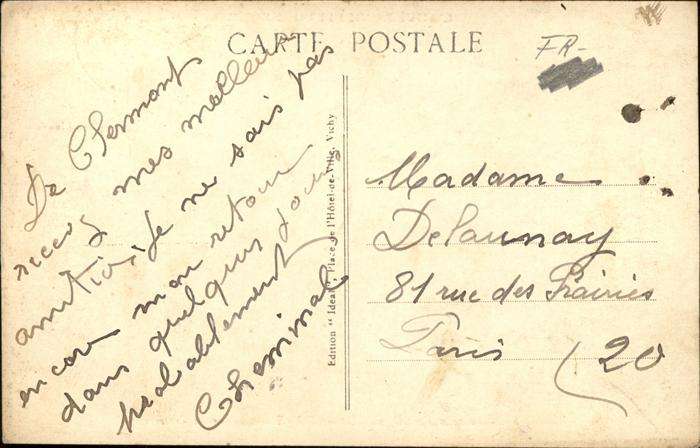 CARTE POSTALE
FR-
De Clermont
recevez mes meilleurs
amitiés je ne sais pas
encore mon retour
dans quelques jours
probablement
Cheminal
Edition "Ideal", Place de l'Hôtel-de-Ville, Vichy
Madame
Delaunay
81 rue des Prairies
Paris (20